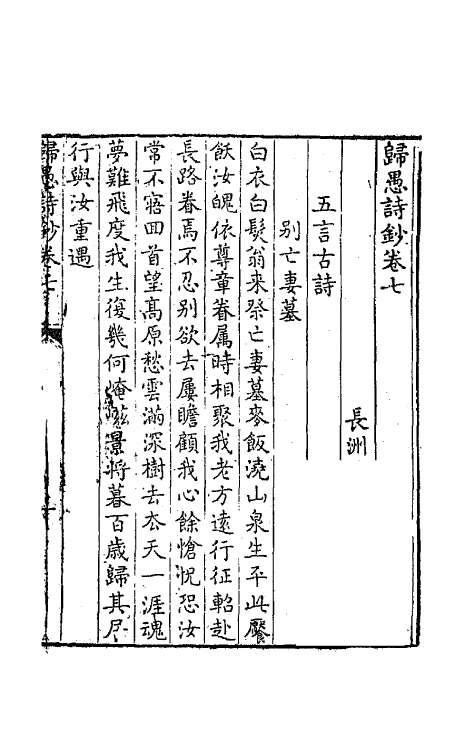 歸愚詩鈔卷七
長洲
五言古詩
别亡妻墓
白衣白髮翁来祭亡妻墓麥飯澆山泉生平此饜
飫汝魄依尊章眷属時相聚我老方遠行征軺赴
長路眷焉不忍别欲去屢瞻顧我心餘愴怳恐汝
常不寤回首望高原愁雲滿深樹去去天一涯魂
夢難飛度我生復幾何崦嵫景将暮百歳歸其尽
行與汝重遇
歸愚詩鈔卷七